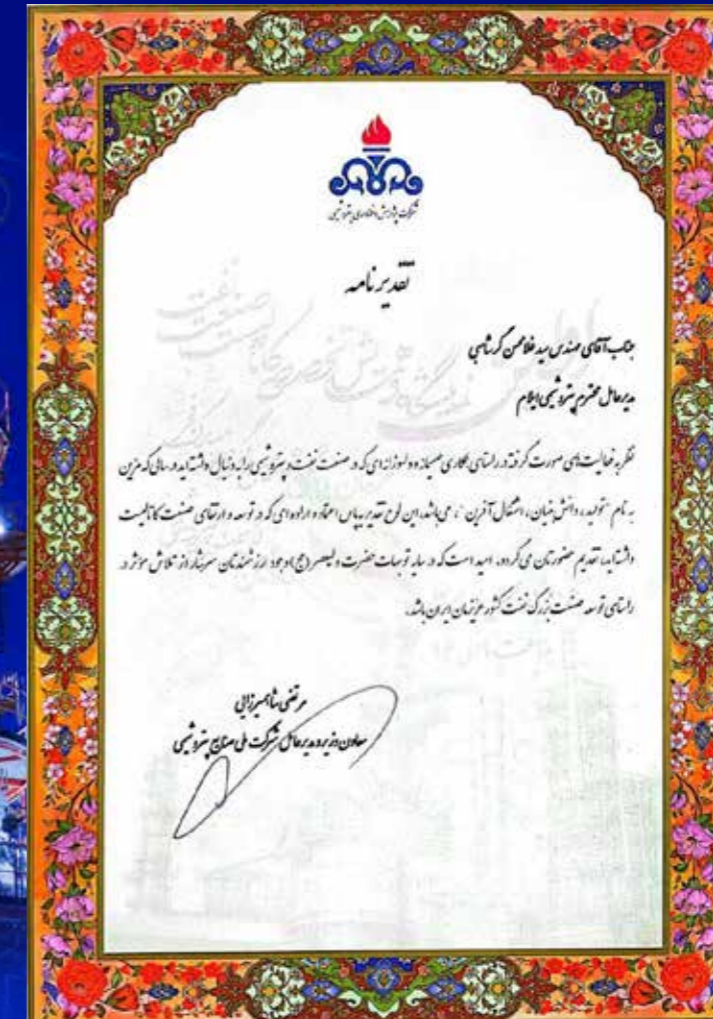 شرکت پژوهش و فناوری پتروشیمی
تقدیر نامه
جناب آقای مهندس سید غلامحسن گرشاسبی
مدیرعامل محترم پتروشیمی ایلام
نظر به فعالیت‌های صورت گرفته در راستای همکاری صمیمانه و دلسوزانه‌ای که در صنعت نفت و پتروشیمی را به دنبال داشته‌اید در سالی که مزین
به نام "تولید، دانش بنیان، اشتغال آفرین"، می‌باشد، این لوح تقدیر بپاس اعتماد و اراده‌ای که در توسعه و ارتقای صنعت کاتالیست
داشته‌اید، تقدیم حضورتان می‌گردد، امید است که در سایه توجهات حضرت ولیعصر (عج) وجود ارزشمندتان سرشار از تلاش مؤثر در
راستای توسعه صنعت بزرگ نفت کشور عزیزمان ایران باشد.
مرتضی شاهمیرزایی
معاون وزیر و مدیرعامل شرکت ملی صنایع پتروشیمی